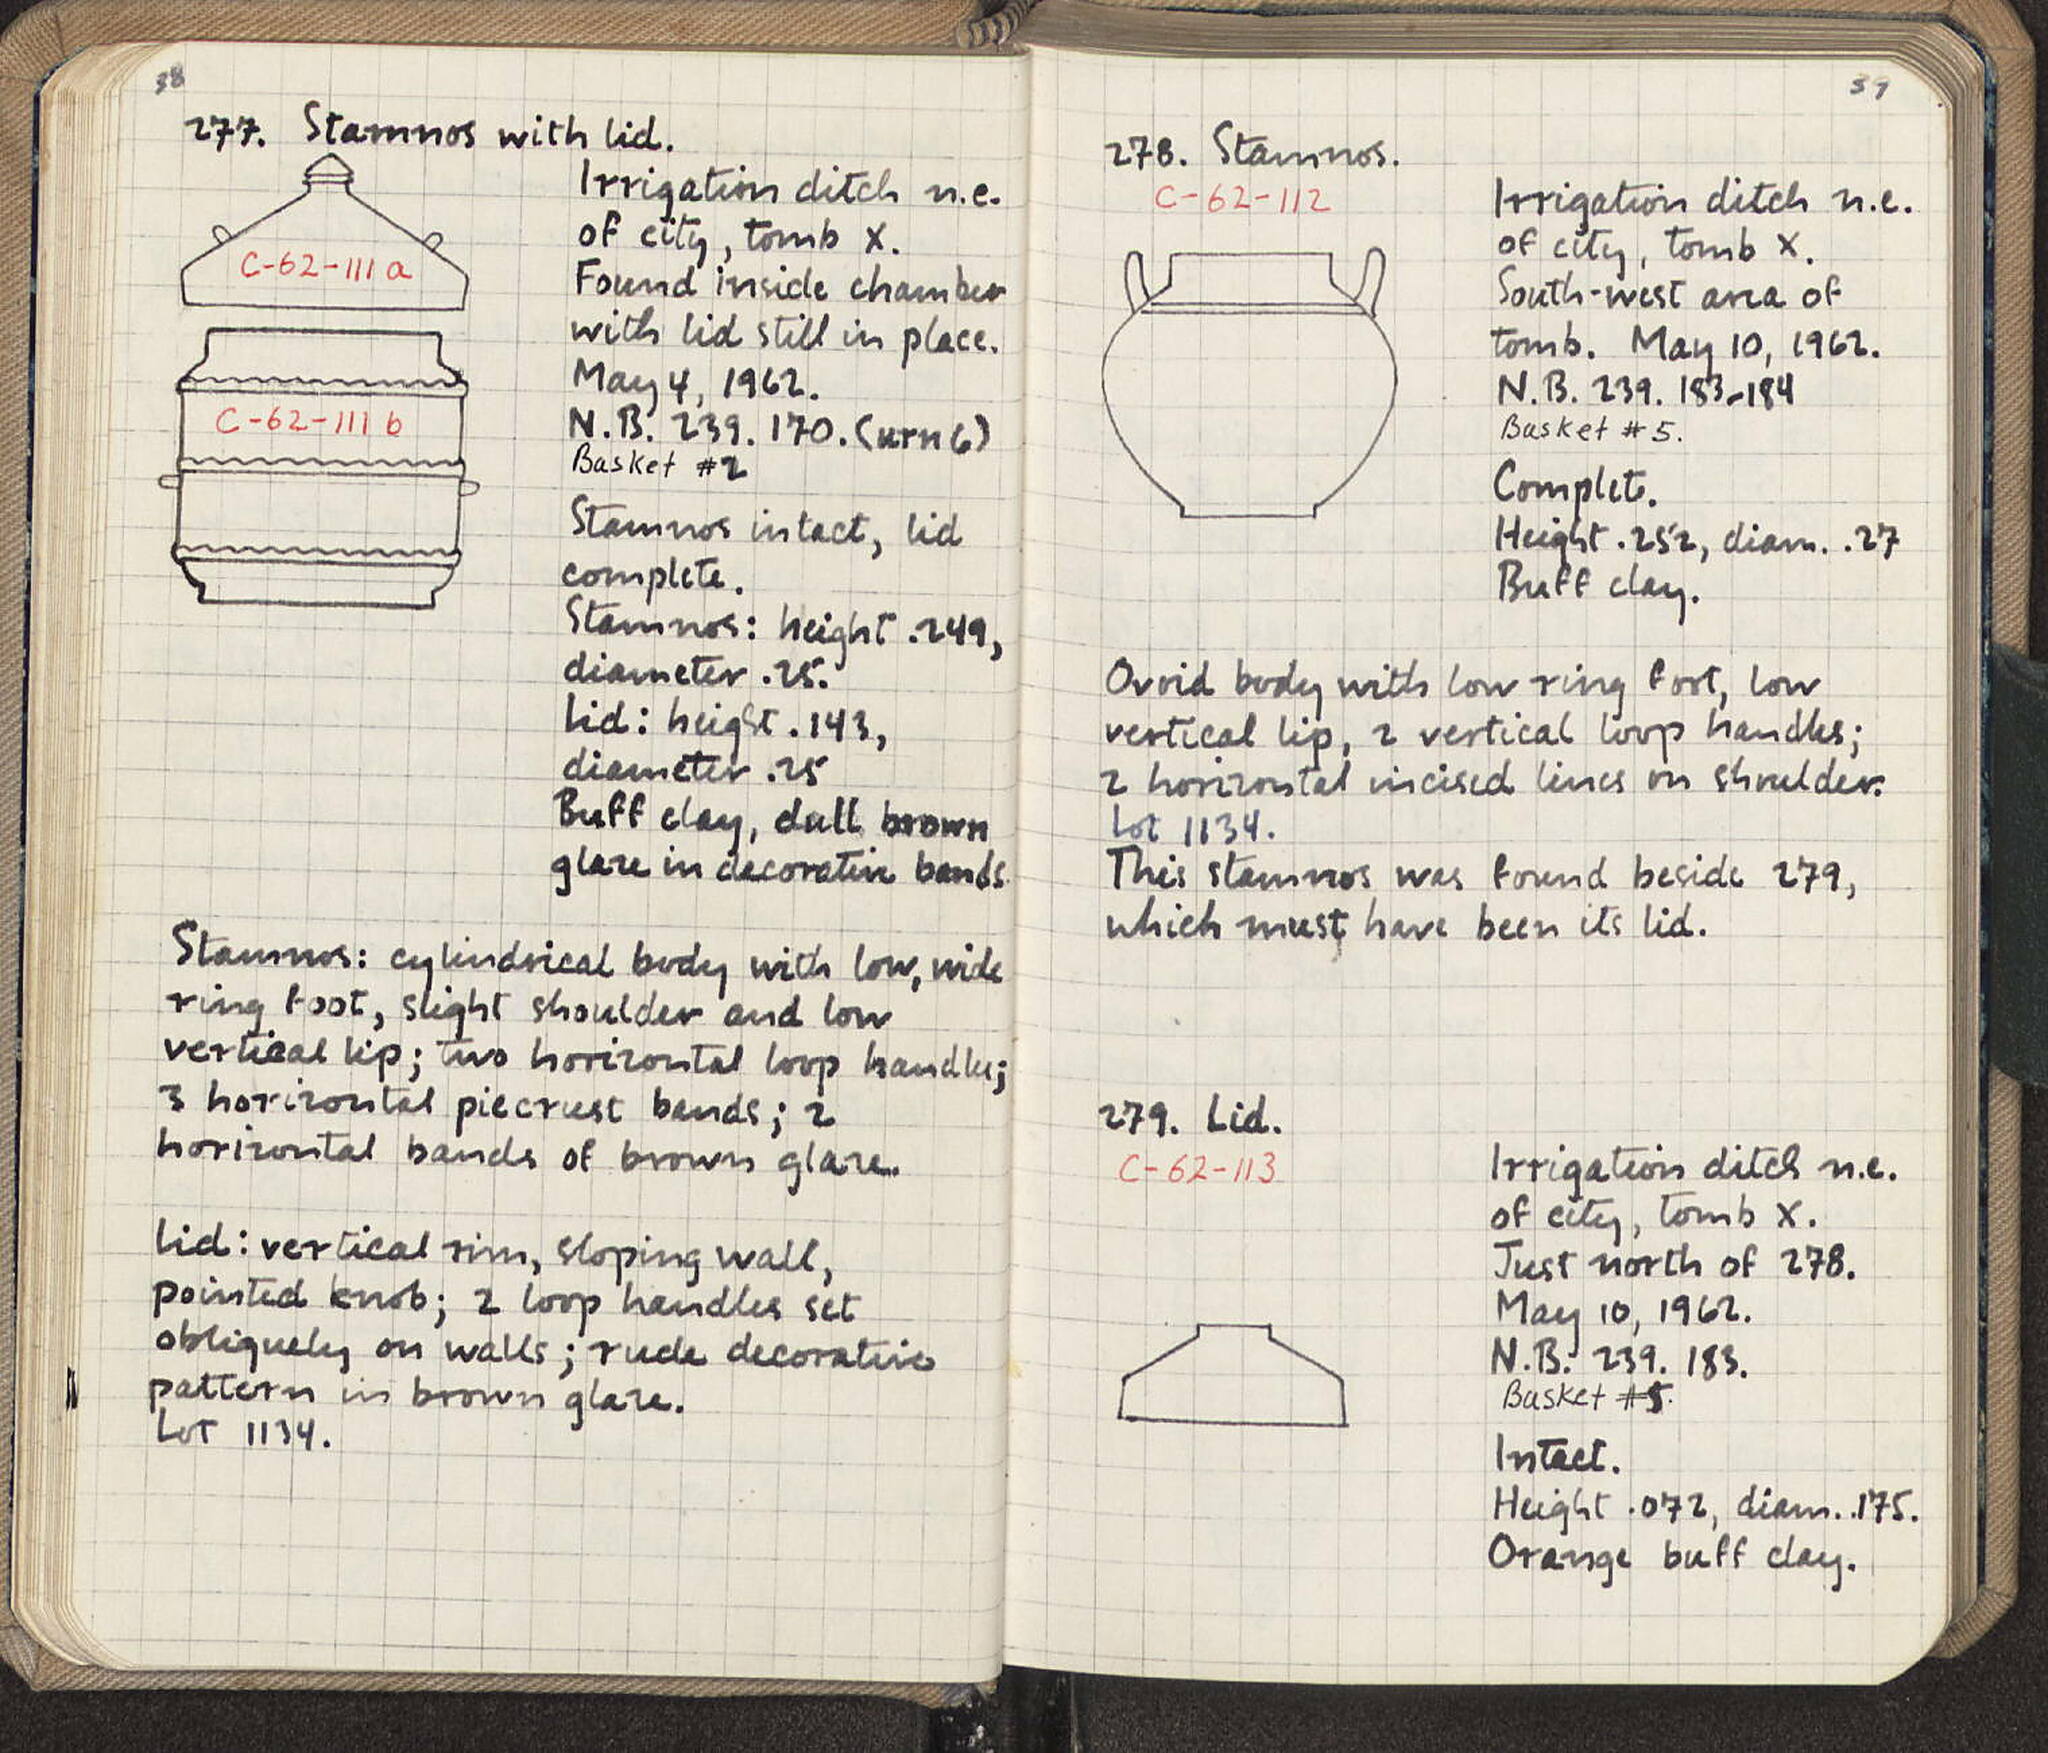 38
277. Stamnos with lid.
C-62-111 a
C-62-111 b
Irrigation ditch n.e.
of city, tomb X.
Found inside chamber
with lid still in place.
May 4, 1962.
N.B. 239. 170. (urn 6)
Basket #2
Stamnos intact, lid
complete.
Stamnos: height .249,
diameter .25.
Lid: height .143,
diameter .25
Buff clay, dull brown
glaze in decorative bands.
Stamnos: cylindrical body with low, wide
ring foot, slight shoulder and low
vertical lip; two horizontal loop handles;
3 horizontal piecrust bands; 2
horizontal bands of brown glaze.
Lid: vertical rim, sloping wall,
pointed knob; 2 loop handles set
obliquely on walls; rude decorative
pattern in brown glaze.
Lot 1134.
39
278. Stamnos.
C-62-112
Irrigation ditch n.e.
of city, tomb X.
South-west area of
tomb. May 10, 1962.
N.B. 239. 183-184
Basket #5.
Complete.
Height .252, diam. .27
Buff clay.
Ovoid body with low ring foot, low
vertical lip, 2 vertical loop handles;
2 horizontal incised lines on shoulder.
Lot 1134.
This stamnos was found beside 279,
which must have been its lid.
279. Lid.
C-62-113
Irrigation ditch n.e.
of city, tomb X.
Just north of 278.
May 10, 1962.
N.B. 239. 183.
Basket #5.
Intact.
Height .072, diam. .175.
Orange buff clay.